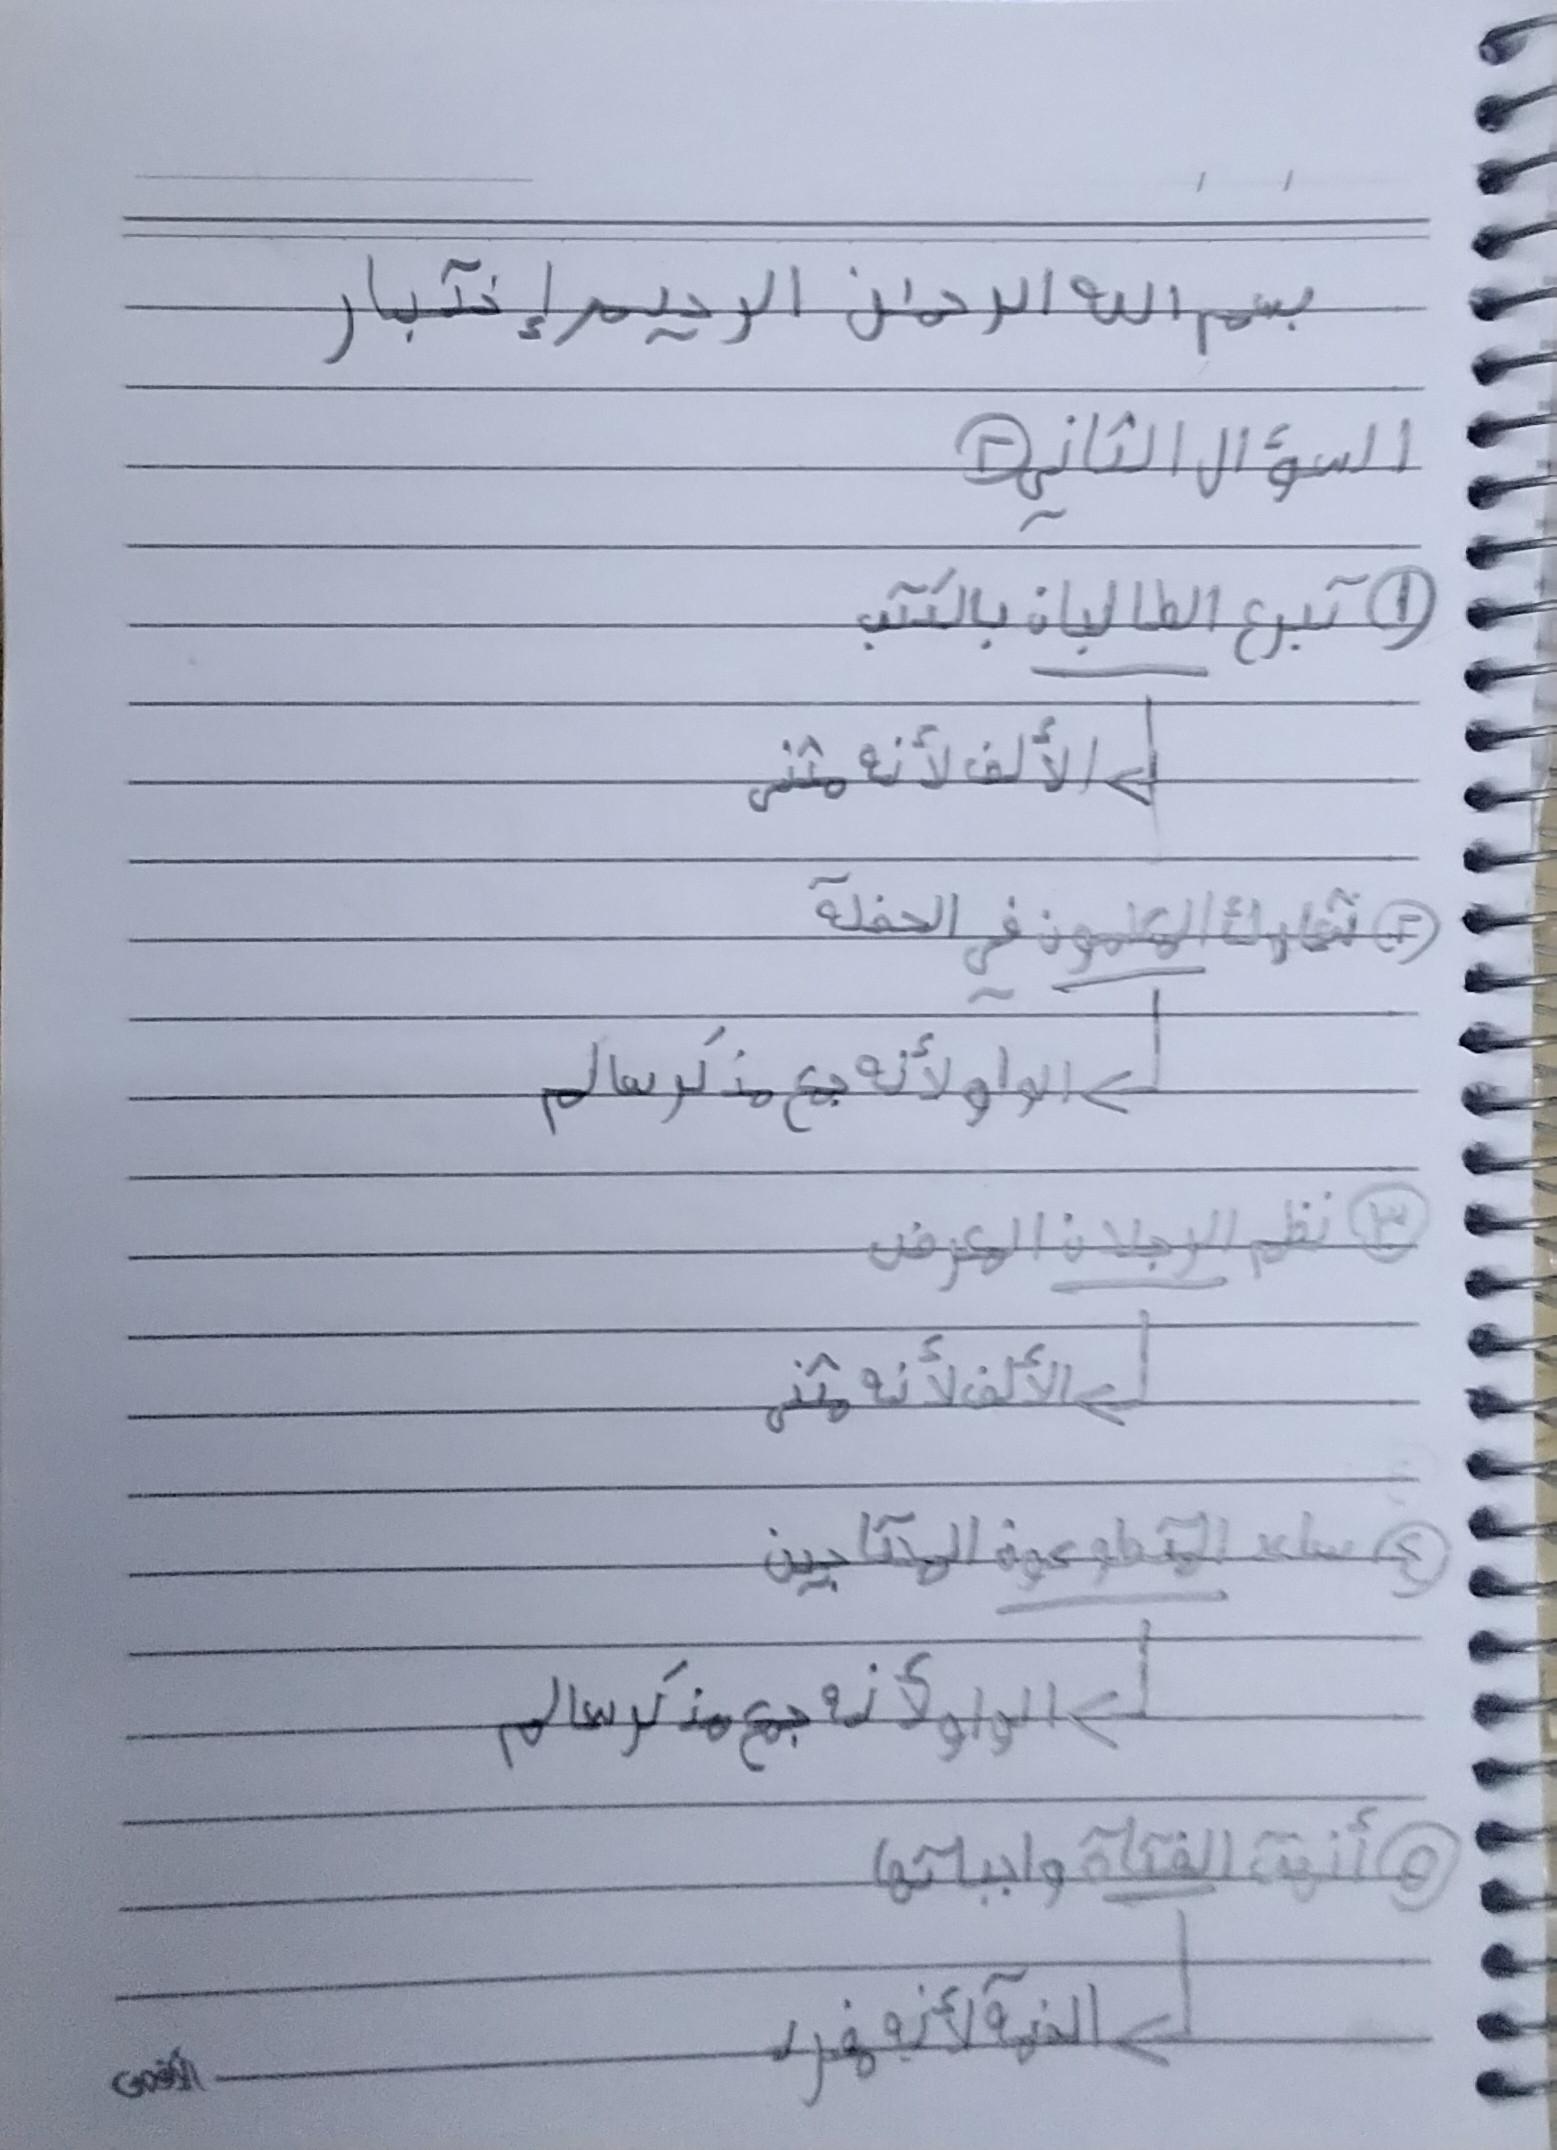 بسم الله الرحمن الرحيم إختبار
السؤال الثاني ٢
١ تبرع الطالبان بالكتب
الألف لأنه مثنى
٢ تشارك المعلمون في الحفلة
الواو لأنه جمع مذكر سالم
٣ نظم الرجلان المعرض
الألف لأنه مثنى
٤ ساعد المتطوعون المحتاجين
الواو لأنه جمع مذكر سالم
٥ أنهت الفتاة واجباتها
الضمة لأنه مفرد